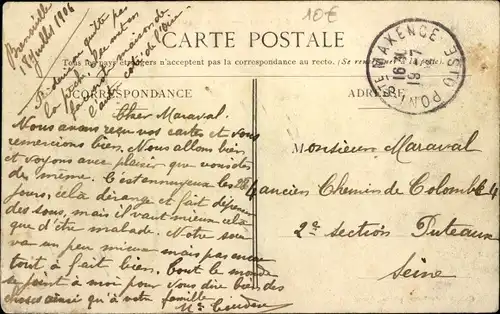 10€
Brenouille
18 Juillet 1906
CARTE POSTALE
Tous les pays étrangers n'acceptent pas la correspondance au recto. (Se renseigner à la poste).
PONT-STE-MAXENCE OISE
CORRESPONDANCE
ADRESSE
Cher Maraval.
Nous avons reçu vos cartes et vous
remercions bien. Nous allons bien
et voyons avec plaisir que vous êtes
de même. C'est ennuyeux les
jours, celà dérange et fait dépenser
des sous, mais il vaut mieux celà
que d'être malade. Notre
va un peu mieux mais pas encore
tout à fait bien. Tout le monde
se joint à moi pour vous dire bien des
choses ainsi qu'à votre famille
Monsieur Maraval
4 ancien Chemin de Colombes 4
2e section Puteaux
Seine